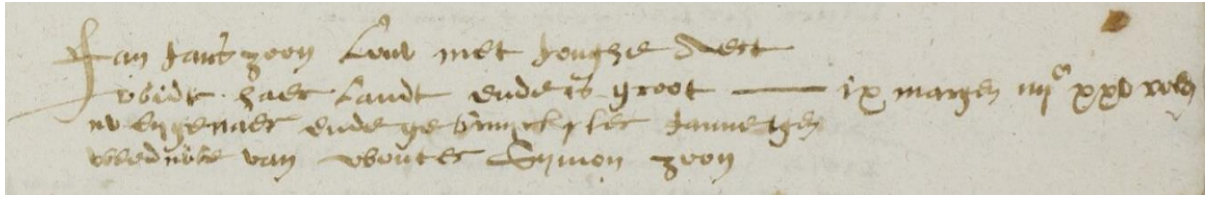 Jan Jansz zoon Louw met Jonghe Aert
weidt haer Landt ende is groot — ix margen iiijc xxv roen
nu eygenaer ende gebruyckster Jannetgen
weeduwe van Wouter Symon zoon